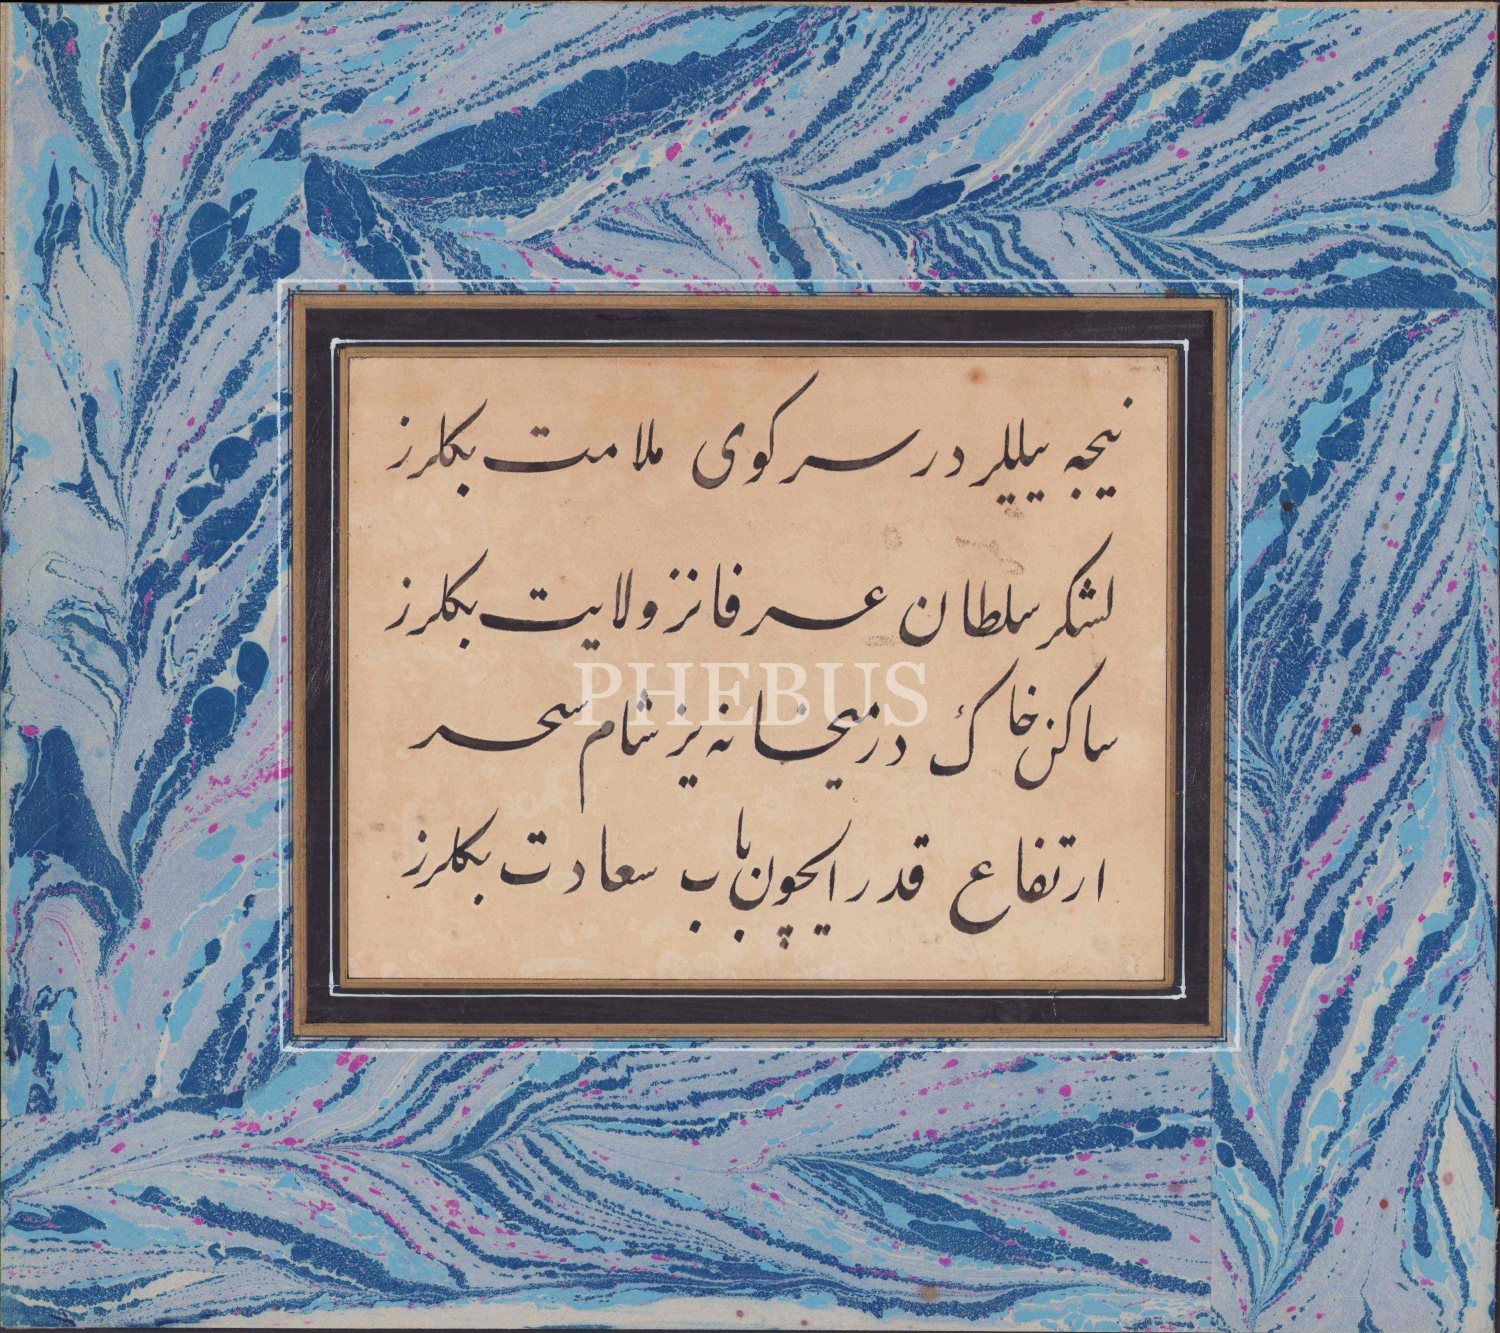 نیجه ییللر در سر کوی ملامت بکلرز
لشکر سلطان عرفانز ولایت بکلرز
PHEBUS
ساکن خاک در میخانه یز شام سحر
ارتفاع قدر ایچون باب سعادت بکلرز